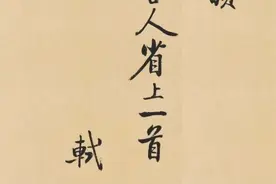 人省上一首
軾